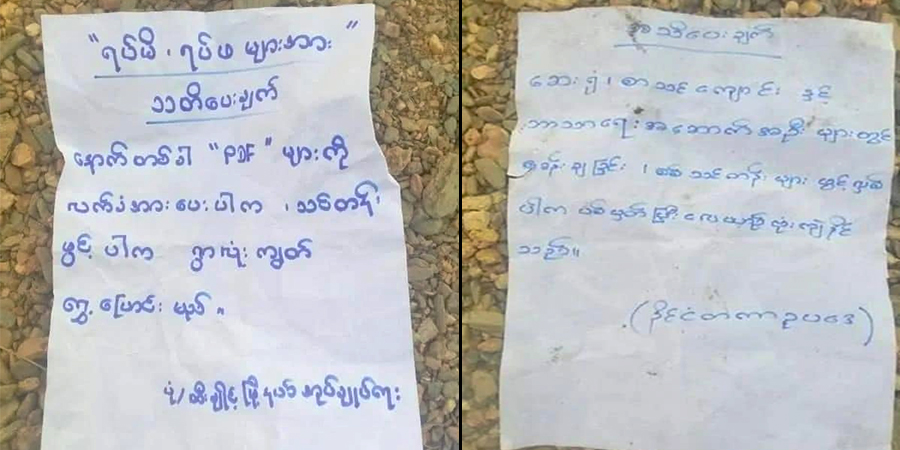 "ရပ်မိ၊ ရပ်ဖ များအား"
သတိပေးချက်
နောက်တစ်ခါ "PDF" များကို
လက်ခံအားပေးပါက ၊ သင်တန်း
ဖွင့်ပါက ရွာလုံးကျွတ်
ရွှေ့ပြောင်းမည်။
ပုံ/ဆီးချိုင့်မြို့နယ်အုပ်ချုပ်ရေး
အသိပေးချက်
ဆေးရုံ၊ စာသင်ကျောင်း နှင့်
ဘာသာရေးအဆောက်အဦး များတွင်
စခန်းချခြင်း ၊ စစ်သင်တန်းများ ဖွင့်လှစ်
ပါက ပစ်မှတ်ပြီးလေယာဉ်ဖြင့်ဗုံးကြဲနိုင်
သည်။
(နိုင်ငံတကာဥပဒေ)